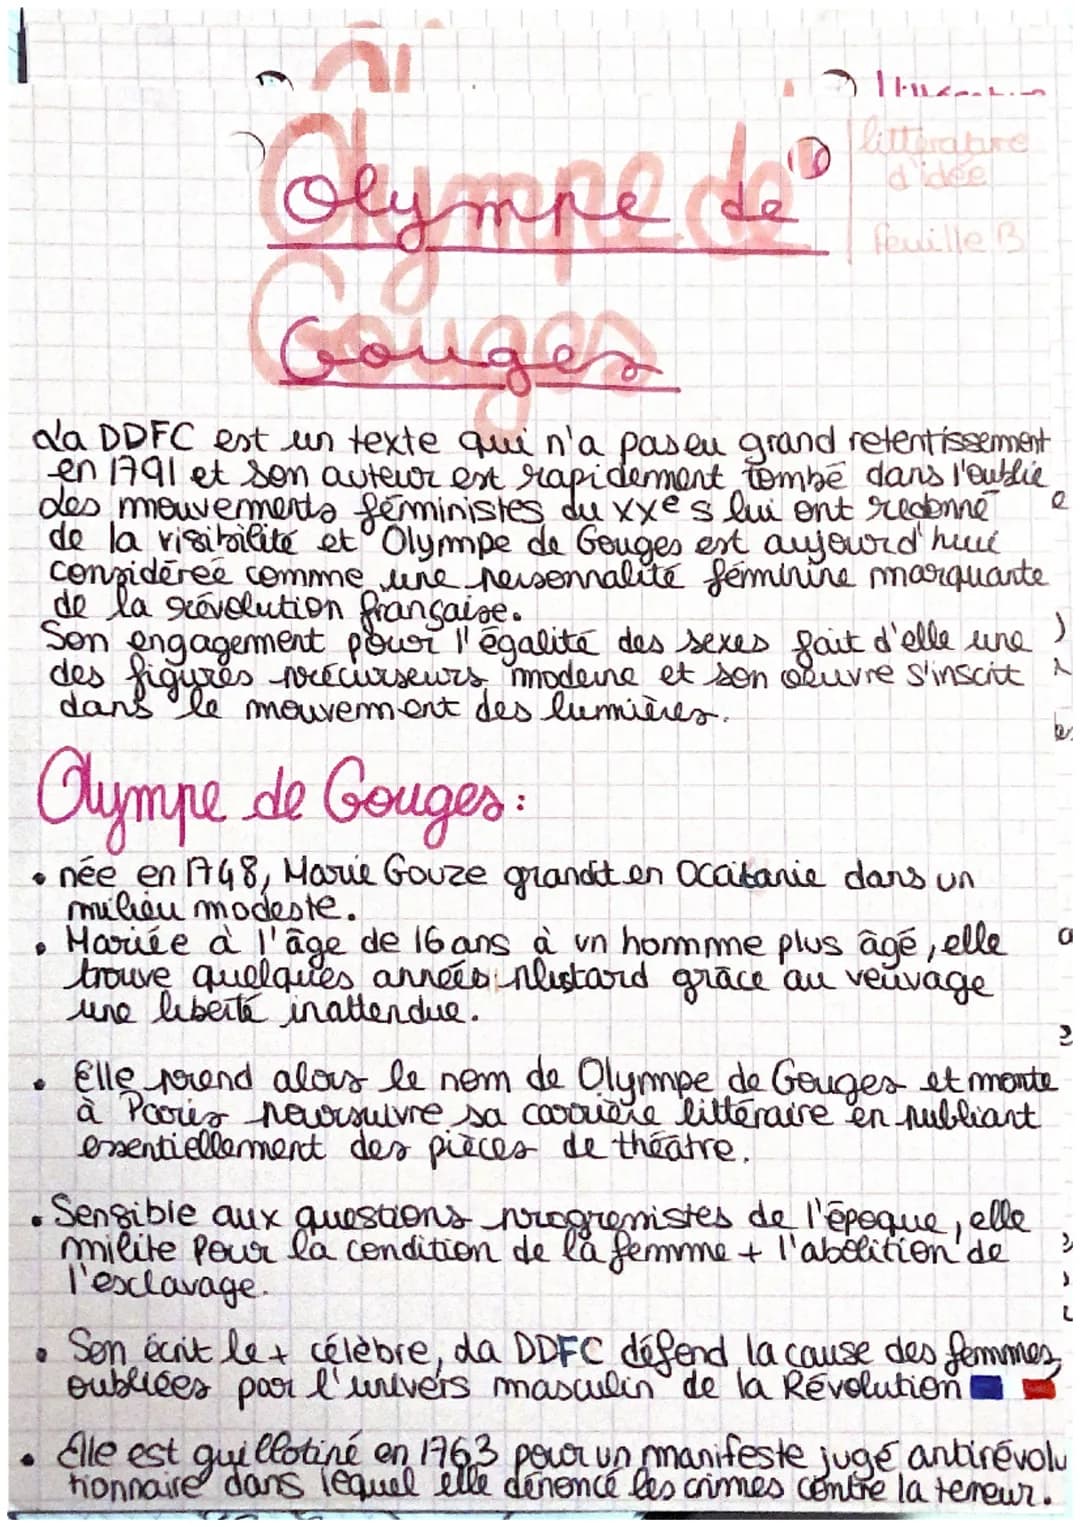 Olympe de
Gouges
littérature
d'idée
feuille B
La DDFC est un texte qui n'a pas eu grand retentissement
en 1791 et son auteur est rapidement tombé dans l'oublie
des mouvements féministes du XXe s lui ont redonné
de la visibilité et Olympe de Gouges est aujourd'hui
considérée comme une personnalité féminine marquante
de la révolution française.
Son engagement pour l'égalité des sexes fait d'elle une
des figures précurseurs moderne et son oeuvre s'inscrit
dans le mouvement des lumières.
Olympe de Gouges :
• née en 1748, Marie Gouze grandit en Occitanie dans un
milieu modeste.
• Mariée à l'âge de 16 ans à un homme plus âgé, elle
trouve quelques années plus tard grâce au veuvage
une liberté inattendue.
• Elle prend alors le nom de Olympe de Gouges et monte
à Paris poursuivre sa carrière littéraire en publiant
essentiellement des pièces de théâtre.
• Sensible aux questions progressistes de l'époque, elle
milite pour la condition de la femme + l'abolition de
l'esclavage.
• Son écrit le + célèbre, La DDFC défend la cause des femmes,
oubliées par l'univers masculin de la Révolution
• Elle est guillotiné en 1763 pour un manifeste jugé antirévolu
tionnaire dans lequel elle dénonce les crimes contre la terreur.